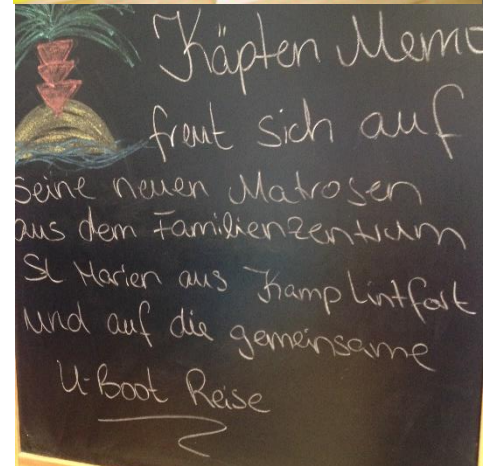 Käpten Memo
freut sich auf
seine neuen Matrosen
aus dem Familienzentrum
St Marien aus Kamp Lintfort
und auf die gemeinsame
U-Boot Reise